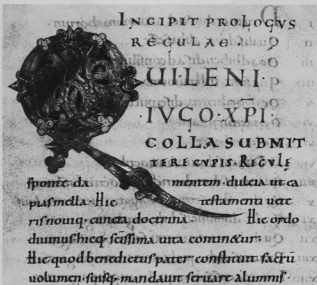 INCIPIT PROLOGVS
REGULAE
QUILENI·
·IVGO·XPI·
COLLA SUBMIT
TERE CUPIS· REGULę
sponte da mentem· dulcia ut ca
pias mella· Hic testamenti uete
ris nouiq· cuncta doctrina· Hic ordo
diuinus hicq· scissima uita continetur·
Hic quod benedictus pater constituit sacrū
uolumen· suisq· mandauit seruare alumnis·